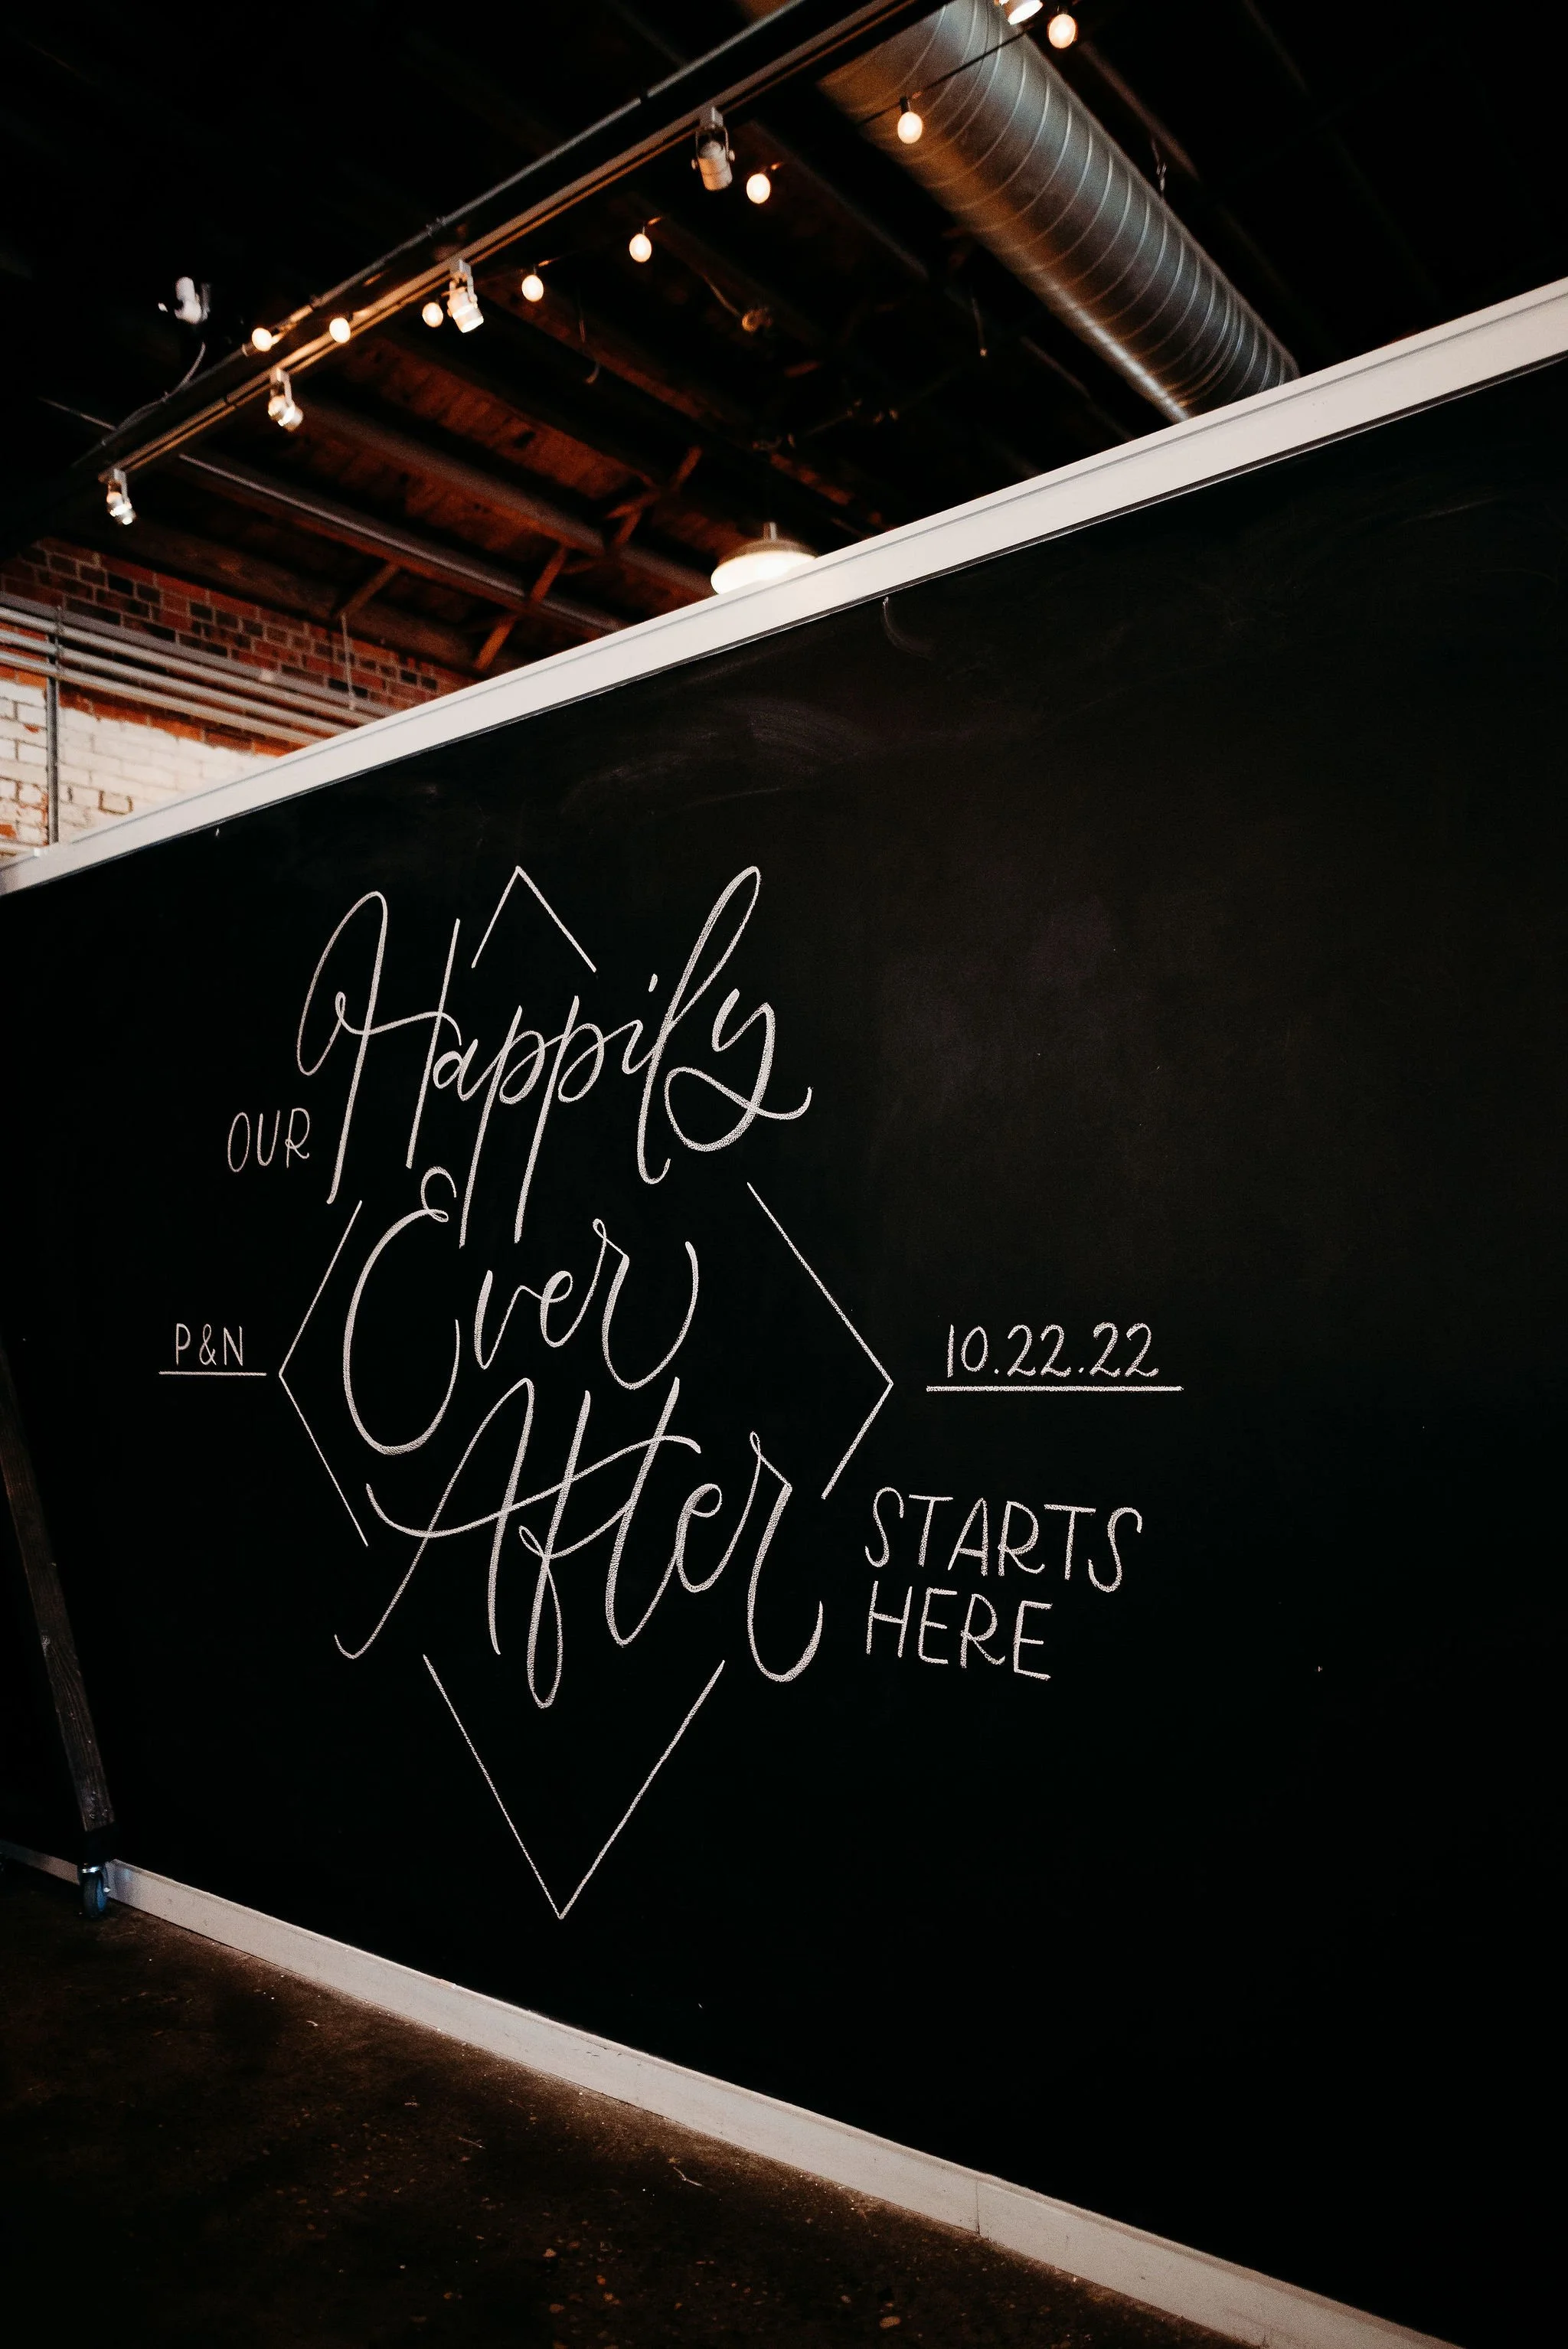 OUR
Happily
Ever
After
P&N
10.22.22
STARTS
HERE